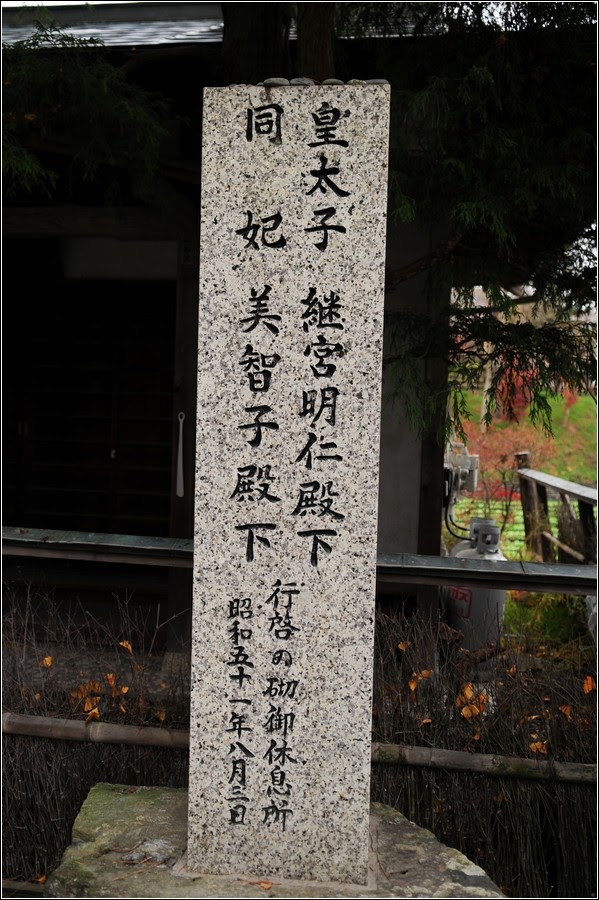 皇太子 継宮明仁殿下
同 妃 美智子殿下
行啓の砌御休息所
昭和五十一年八月三日